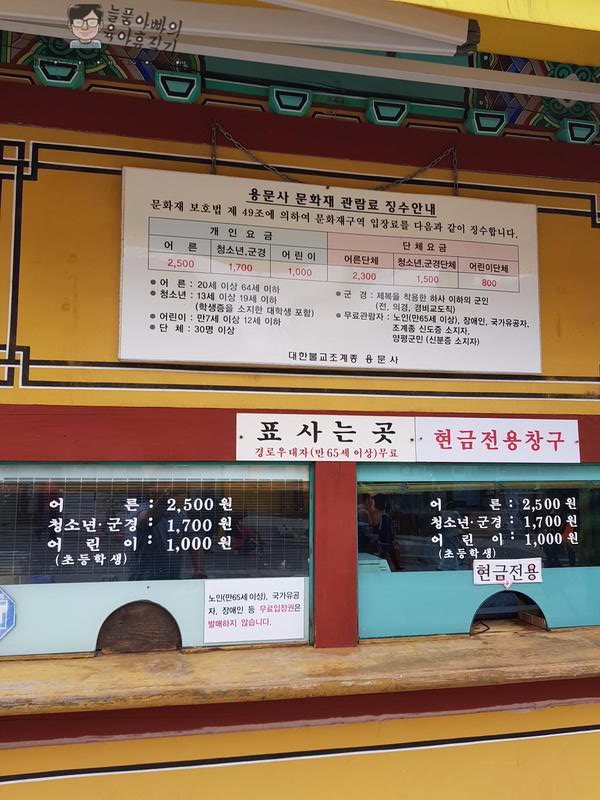 늘품아빠의
육아휴직기
용문사 문화재 관람료 징수안내
문화재 보호법 제 49조에 의하여 문화재구역 입장료를 다음과 같이 징수합니다.
개 인 요 금 단 체 요 금
어 른 청소년,군경 어 린 이 어른단체 청소년,군경단체 어린이단체
2,500 1,700 1,000 2,300 1,500 800
● 어 른 : 20세 이상 64세 이하
● 청소년 : 13세 이상 19세 이하
(학생증을 소지한 대학생 포함)
● 어린이 : 만7세 이상 12세 이하
● 단 체 : 30명 이상
● 군 경 : 제복을 착용한 하사 이하의 군인
(전, 의경, 경비교도직)
● 무료관람자 : 노인(만65세 이상), 장애인, 국가유공자,
조계종 신도증 소지자,
양평군민 (신분증 소지자)
대한불교조계종 용문사
표 사는 곳
경로우대자(만 65세 이상)무료
현금전용창구
어 른 : 2,500 원
청소년·군경 : 1,700 원
어 린 이 : 1,000 원
(초등학생)
노인(만65세 이상), 국가유공
자, 장애인 등 무료입장권은
발매하지 않습니다.
어 른 : 2,500 원
청소년·군경 : 1,700 원
어 린 이 : 1,000 원
(초등학생)
현금전용